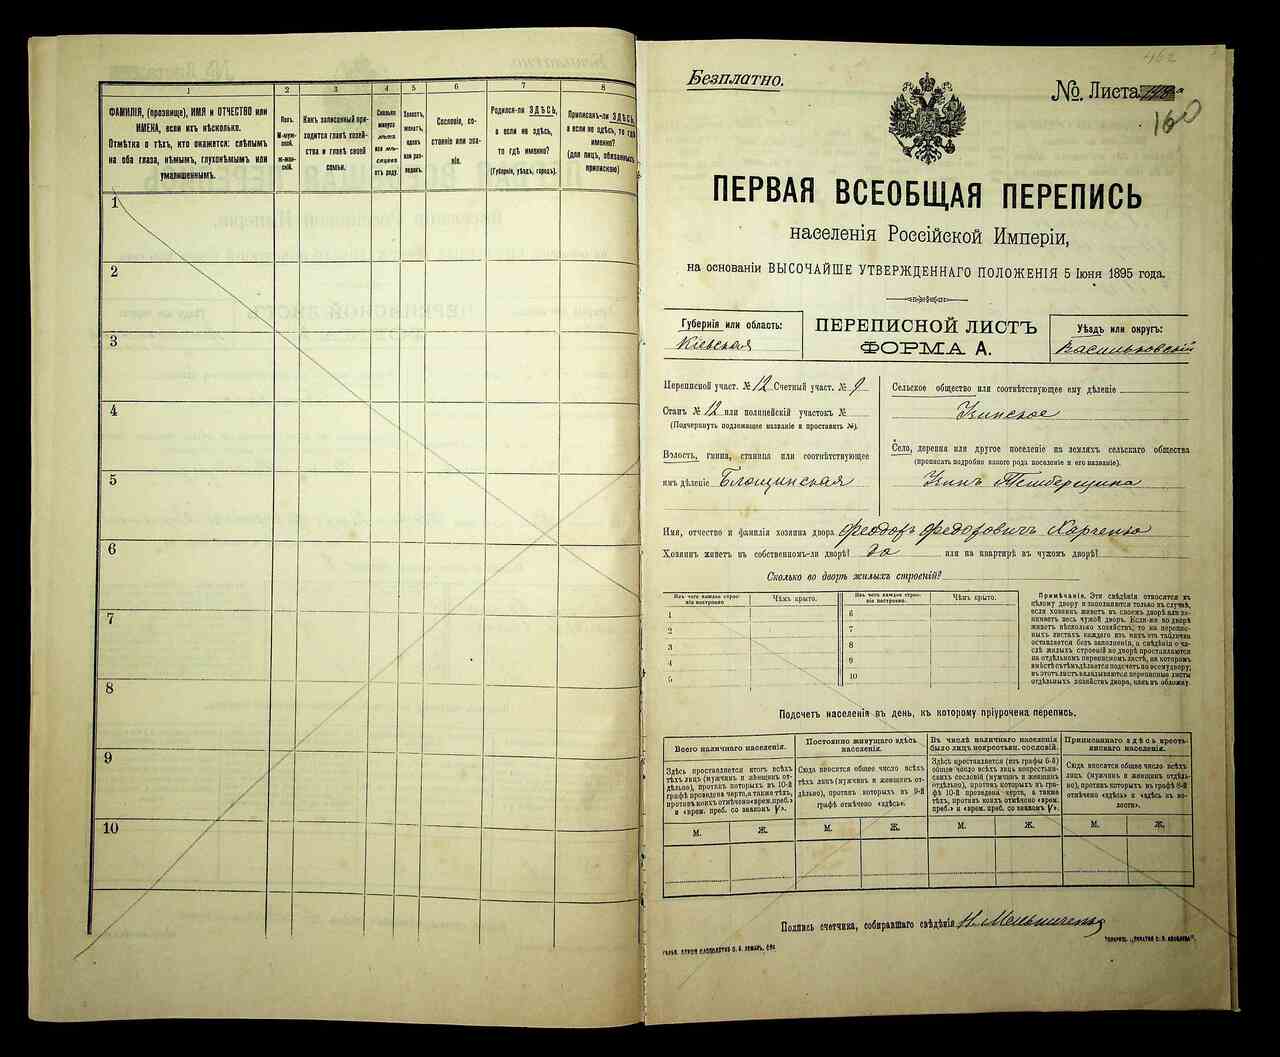 1 2 3 4 5 6 7 8
ФАМИЛІЯ, (прозвище), ИМЯ и ОТЧЕСТВО или
ИМЕНА, если ихъ нѣсколько.
Отмѣтка о тѣхъ, кто окажется: слѣпымъ
на оба глаза, нѣмымъ, глухонѣмымъ или
умалишеннымъ.
Полъ.
М-муж-
ской.
Ж-жен-
скій.
Какъ записанный при-
ходится главѣ хозяй-
ства и главѣ своей
семьи.
Сколько
минуло
лѣтъ
или мѣ-
сяцевъ
отъ роду.
Холостъ,
женатъ,
вдовъ
или раз-
веденъ.
Сословіе, со-
стояніе или зва-
ніе.
Родился-ли ЗДѢСЬ,
а если не здѣсь,
то гдѣ именно?
(Губернія, уѣздъ, городъ).
Приписанъ-ли ЗДѢСЬ,
а если не здѣсь, то гдѣ
именно?
(для лицъ, обязанныхъ
припискою)
1
2
3
4
5
6
7
8
9
10
462
Безплатно.
№ Листа
160
ПЕРВАЯ ВСЕОБЩАЯ ПЕРЕПИСЬ
населенія Россійской Имперіи,
на основаніи ВЫСОЧАЙШЕ УТВЕРЖДЕННАГО ПОЛОЖЕНІЯ 5 Іюня 1895 года.
Губернія или область:
Кіевская
ПЕРЕПИСНОЙ ЛИСТЪ
ФОРМА А.
Уѣздъ или округъ:
Васильковскій
Переписной участ. № 12 Счетный участ. № 9
Станъ № 12 или полицейскій участокъ №
(Подчеркнуть подлежащее названіе и проставить №).
Волость, гмина, станица или соотвѣтствующее
имъ дѣленіе Блощинская
Сельское общество или соотвѣтствующее ему дѣленіе
Узинское
Село, деревня или другое поселеніе на земляхъ сельскаго общества
(прописать подробно какого рода поселеніе и его названіе).
Узинъ Темберщина
Имя, отчество и фамилія хозяина двора Феодоръ Федоровичъ Харченко
Хозяинъ живетъ въ собственномъ-ли дворѣ? да или на квартирѣ въ чужомъ дворѣ?
Сколько во дворѣ жилыхъ строеній?
Изъ чего каждое строе-
ніе построено
Чѣмъ крыто.
Изъ чего каждое строе-
ніе построено.
Чѣмъ крыто.
1 6
2 7
3 8
4 9
5 10
Примѣчаніе. Эти свѣдѣнія относятся къ
цѣлому двору и заполняются только въ случаѣ,
если хозяинъ живетъ въ своемъ дворѣ или за-
нимаетъ весь чужой дворъ. Если-же во дворѣ
живетъ нѣсколько хозяйствъ, то на перепис-
ныхъ листахъ каждаго изъ нихъ эта табличка
оставляется безъ заполненія, а свѣдѣнія о чи-
слѣ жилыхъ строеній во дворѣ проставляются
на отдѣльномъ переписномъ листѣ, на которомъ
вмѣстѣ съ тѣмъ дѣлается подсчетъ по всему двору;
въ этотъ листъ вкладываются переписные листы
отдѣльныхъ хозяйствъ двора, какъ въ обложку.
Подсчетъ населенія въ день, къ которому пріурочена перепись.
Всего наличнаго населенія.
Постоянно живущаго здѣсь
населенія.
Въ числѣ наличнаго населенія
было лицъ некрестьян. сословій.
Приписаннаго здѣсь кресть-
янскаго населенія.
Здѣсь проставляется итогъ всѣхъ
тѣхъ лицъ (мужчинъ и женщинъ от-
дѣльно), противъ которыхъ въ 10-й
графѣ проведена черта, а также тѣхъ,
противъ коихъ отмѣчено «врем. преб.»
и «врем. преб. со знакомъ V».
Сюда вносится общее число всѣхъ
тѣхъ лицъ (мужчинъ и женщинъ от-
дѣльно), противъ которыхъ въ 9-й
графѣ отмѣчено «здѣсь».
Здѣсь проставляется (изъ графы 6-й)
общее число всѣхъ лицъ некрестьян-
скихъ сословій (мужчинъ и женщинъ
отдѣльно), противъ которыхъ въ гра-
фѣ 10-й проведена черта, а также
тѣхъ, противъ коихъ отмѣчено «врем.
преб.» и «врем. преб. со знакомъ V».
Сюда вносится общее число всѣхъ
лицъ (мужчинъ и женщинъ отдѣль-
но), противъ которыхъ въ графѣ 8-й
отмѣчено «здѣсь» и «здѣсь въ во-
лости».
М. Ж. М. Ж. М. Ж. М. Ж.
Подпись счетчика, собиравшаго свѣдѣнія Н. Мельниченко